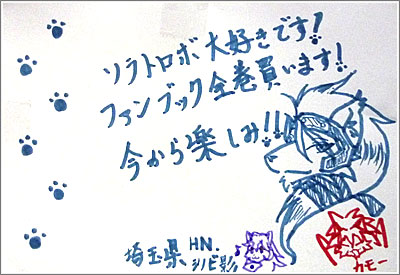 ソラトロボ大好きです!
ファンブック全巻買います!
今から楽しみ!!
埼玉県 HN.シノビ影
カモー